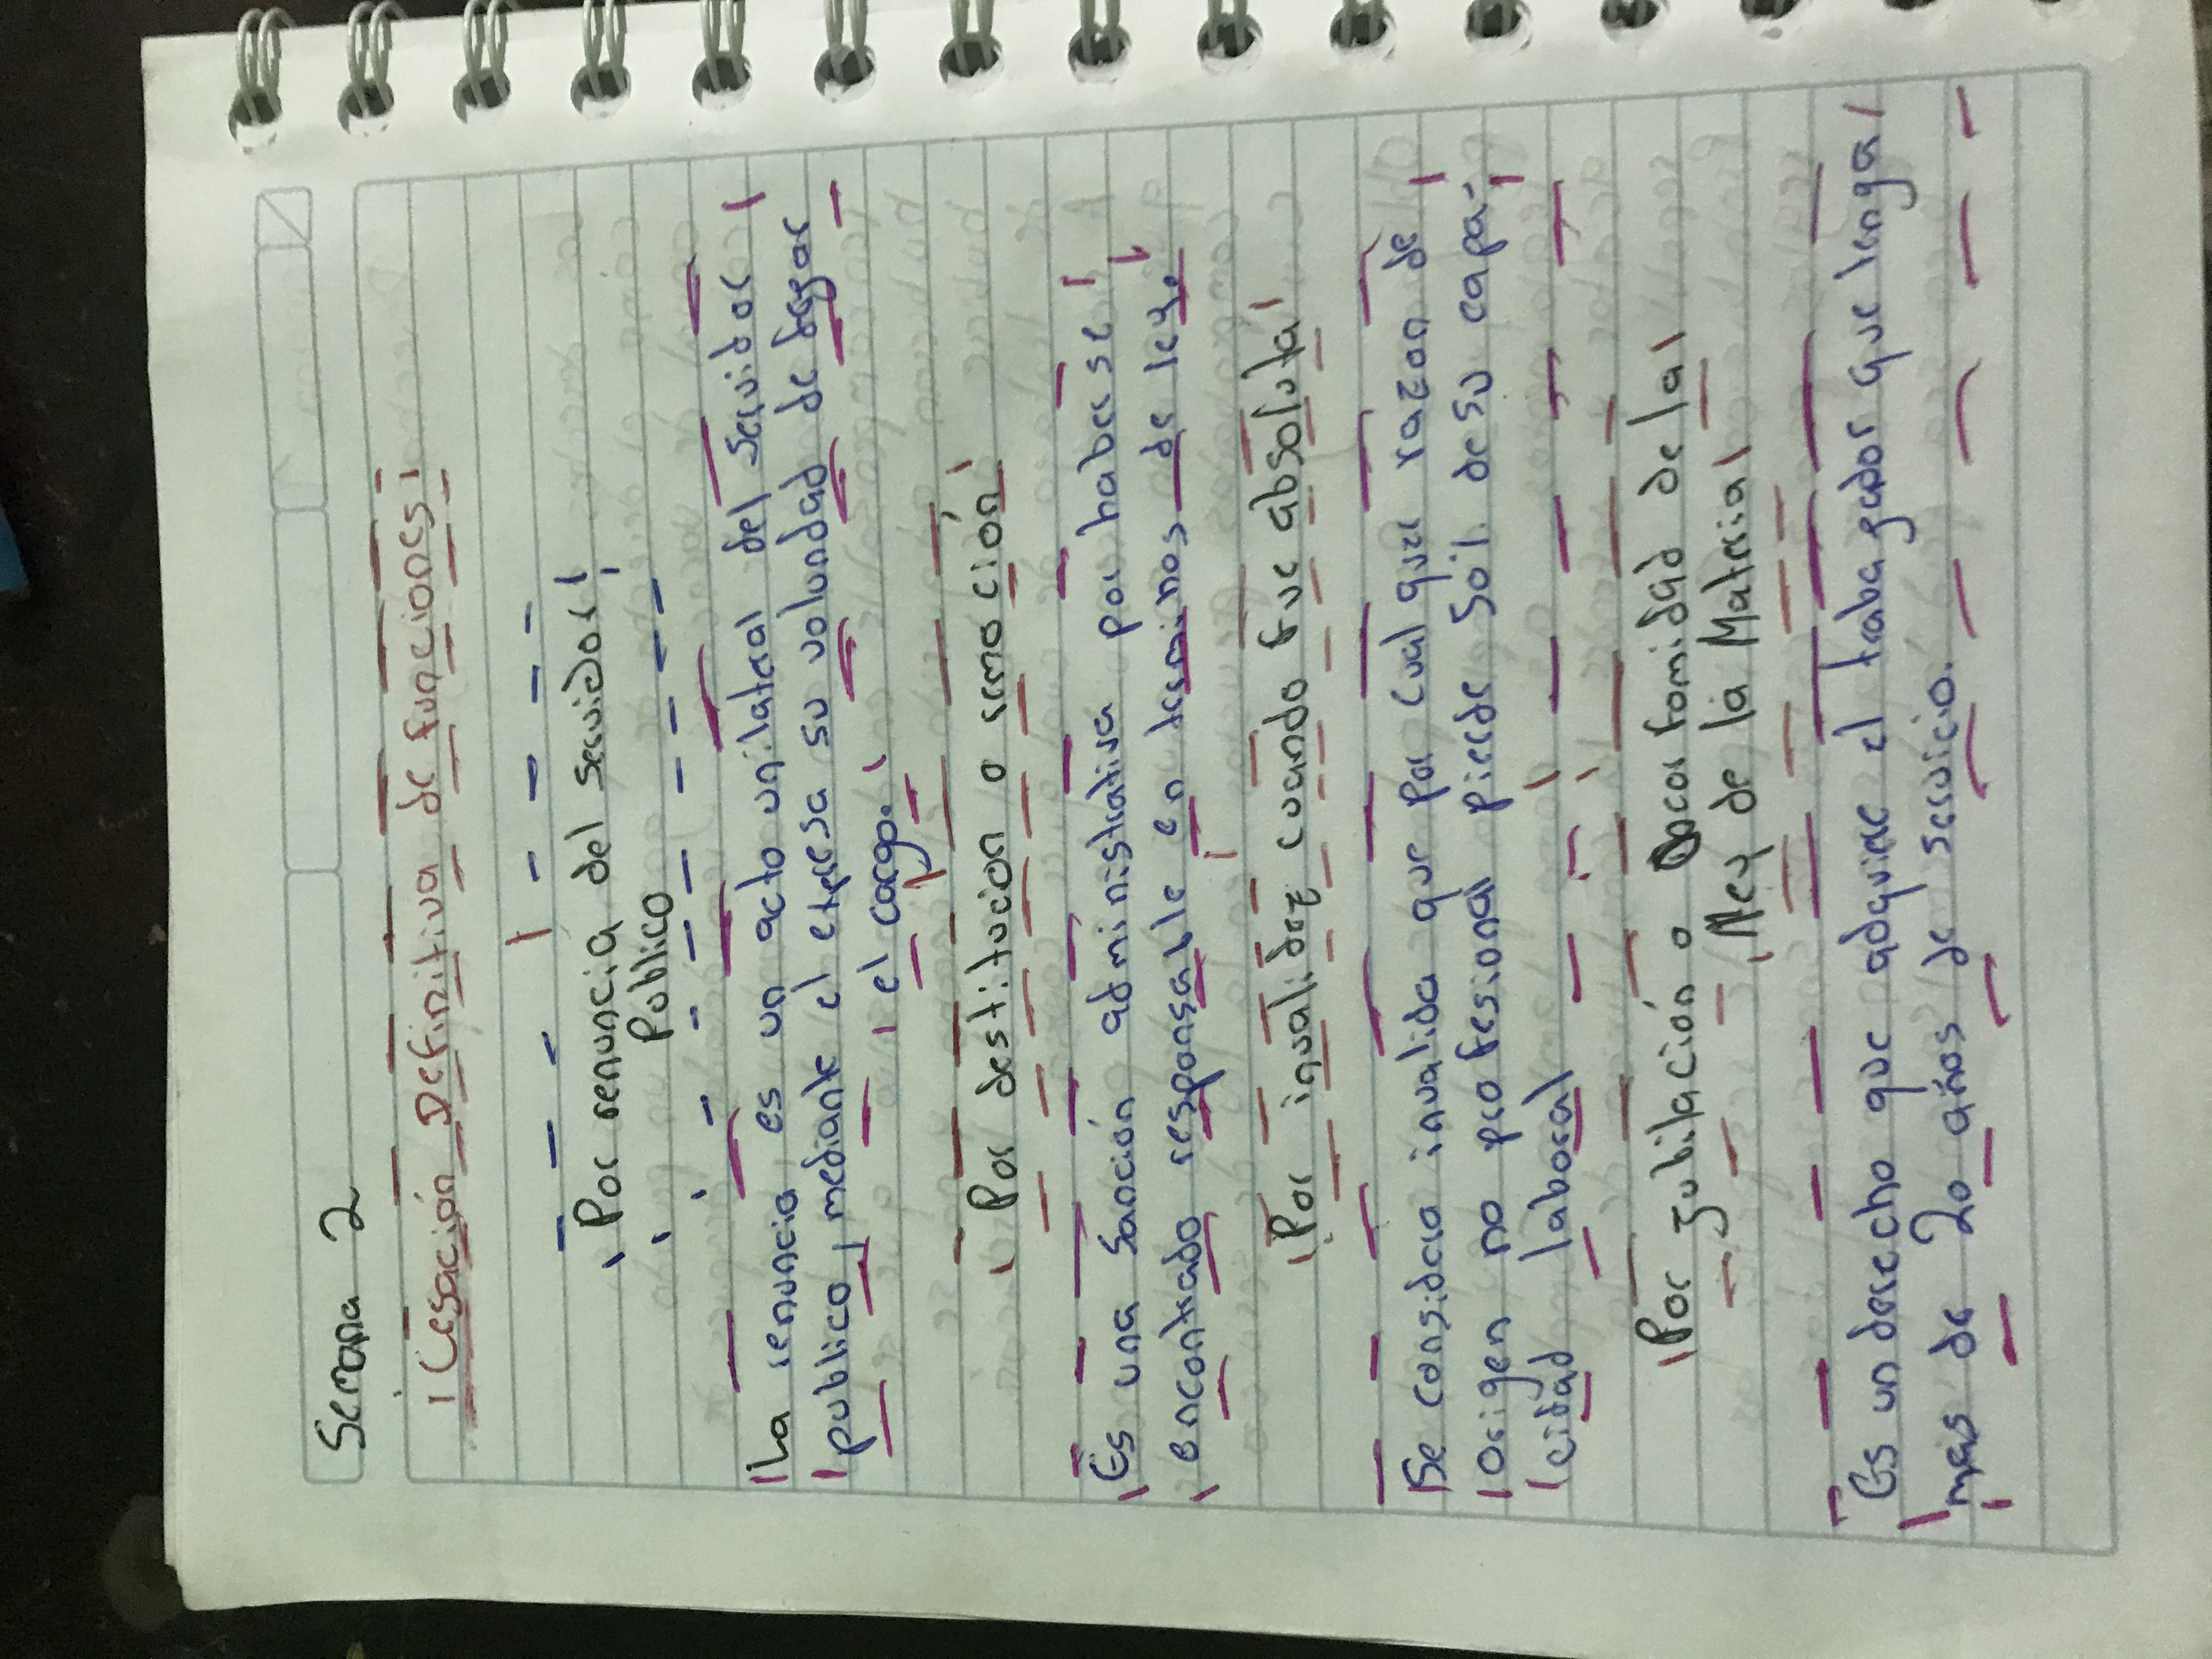 Semana 2
Cesación Definitiva de funciones
Por renuncia del servidor
Publico
La renuncia es un acto unilateral del servidor
publico mediante el etpresa su volundad de degar
el cargo.
Por destitucion o remoción
Es una Sanción administrativa por haberse
encontrado responsable en terminos de ley
Por invalidez cuando fue absoluta
Se considera invalida que por cual quier razon de
origen no profesional pierde Soil de su capa-
cidad laboral
Por Jubilación o corfomidad de la
Ney de la Materia
Es un derecho que adquiere el trabagador que tenga
mas de 20 años de servicio.